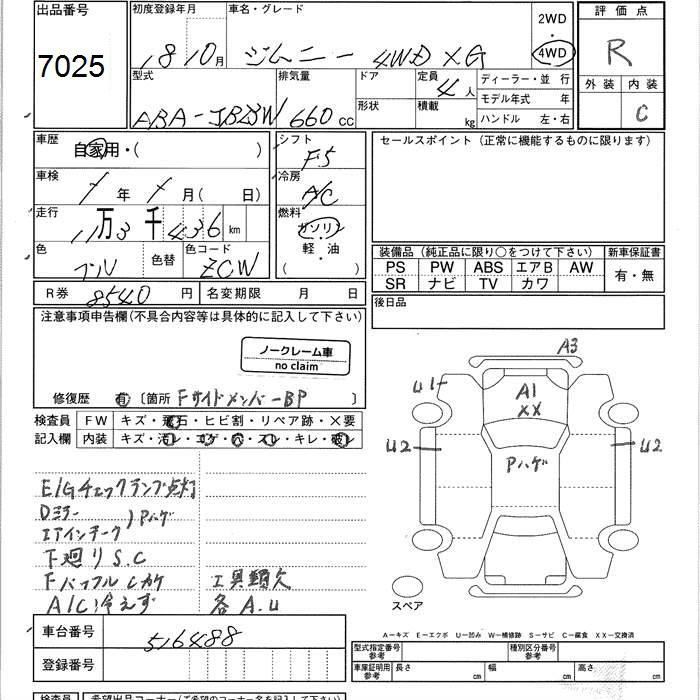 出品番号
7025
初度登録年月
18 10月
車名・グレード
ジムニー 4WD XG
2WD
4WD
評価点
R
外装 内装
C
型式
ABA-JB23W
排気量
660 cc
ドア
形状
定員
4人
積載
kg
ディーラー・並 行
モデル年式 年
ハンドル 左・右
車歴
自家用・( )
車検
年 月( 日)
走行
11万3千436km
色
色替
色コード
ZCW
シフト
F5
冷房
A/C
燃料
ガソリン
軽・油
( )
セールスポイント (正常に機能するものに限ります)
装備品 (純正品に限り〇をつけて下さい)
新車保証書
PS PW ABS エアB AW
SR ナビ TV カワ
有・無
後日品
R券 8540円
名変期限 月 日
注意事項申告欄(不具合内容等は具体的に記入して下さい)
ノークレーム車
no claim
修復歴 有 〔箇所 FサイドメンバーBP 〕
検査員
記入欄
FW キズ・飛石・ヒビ割・リペア跡・X要
内装 キズ・汚レ・コゲ・穴・スレ・キレ・破レ
E/Gチェックランプ点灯
Dミラー
エアインテーク
Pハゲ
下廻りS.C
A/C冷えず
各A.U
車台番号
516488
登録番号
A3
U1
A1
XX
U2
U2
Pハゲ
スペア
A―キズ E―エクボ U―凹み W―補修跡 S―サビ C―腐食 XX―交換済
型式指定番号
参考
種別区分番号
参考
車庫証明用
参考
長さ cm
幅 cm
高さ cm